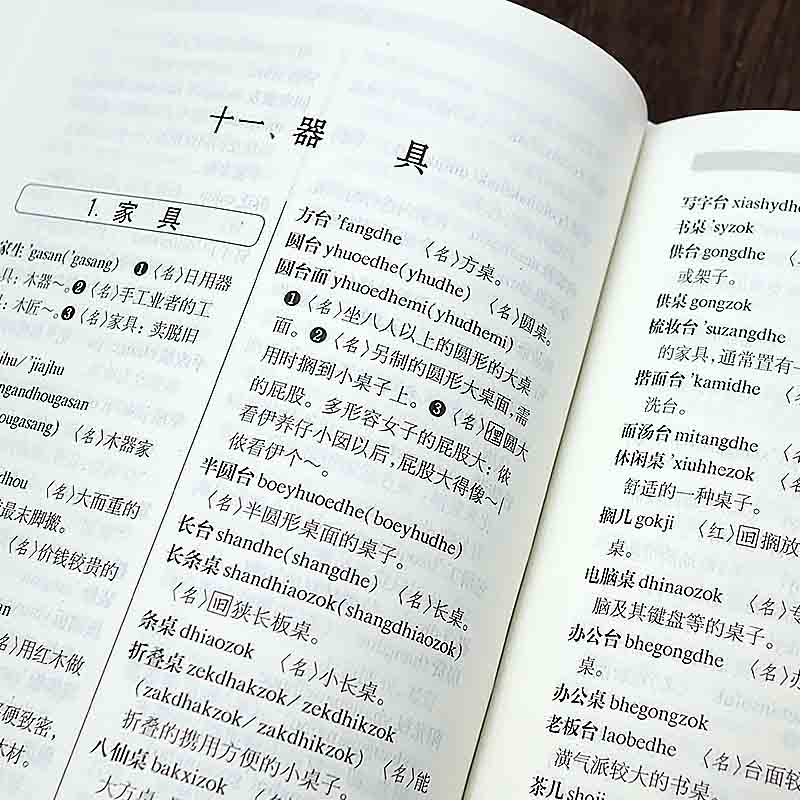 十一、器 具
1. 家 具
家生 'gasan('gasang) ❶〈名〉日用器
具：木器～。❷〈名〉手工业者的工
具：木匠～。❸〈名〉家具：卖脱旧
jihu/ 'jiajhu
ngandhougasan
ougasang) 〈名〉木器家
dhou 〈名〉大而重的
最末脚搬。
〈名〉价钱较贵的
〈名〉用红木做
硬致密，
木材。
方台 'fangdhe 〈名〉方桌。
圆台 yhuoedhe(yhudhe) 〈名〉圆桌。
圆台面 yhuoedhemi(yhudhemi)
❶〈名〉坐八人以上的圆形的大桌
面。❷〈名〉另制的圆形大桌面，需
用时搁到小桌子上。❸〈名〉圆大
的屁股。多形容女子的屁股大：侬
看伊养仔小囡以后，屁股大得像～|
侬看伊个～。
半圆台 boeyhuoedhe(boeyhudhe)
〈名〉半圆形桌面的桌子。
长台 shandhe(shangdhe) 〈名〉长桌。
长条桌 shandhiaozok(shangdhiaozok)
〈名〉回狭长板桌。
条桌 dhiaozok 〈名〉小长桌。
折叠桌 zekdhakzok/ zekdhikzok
(zakdhakzok/ zakdhikzok) 〈名〉能
折叠的携用方便的小桌子。
八仙桌 bakxizok 〈名〉
大方桌
写字台 xiashydhe
书桌 'syzok
供台 gongdhe
或架子。
供桌 gongzok
梳妆台 'suzangdhe
的家具，通常置有一
揩面台 'kamidhe
洗台。
面汤台 mitangdhe
休闲桌 'xiuhhezok
舒适的一种桌子。
搁几 gokji 〈红〉回搁放
桌。
电脑桌 dhinaozok 〈名〉专
脑及其键盘等的桌子。
办公台 bhegongdhe 〈名〉办
桌。
办公桌 bhegongzok
老板台 laobedhe 〈名〉台面较
潢气派较大的书桌。
茶几 shoji